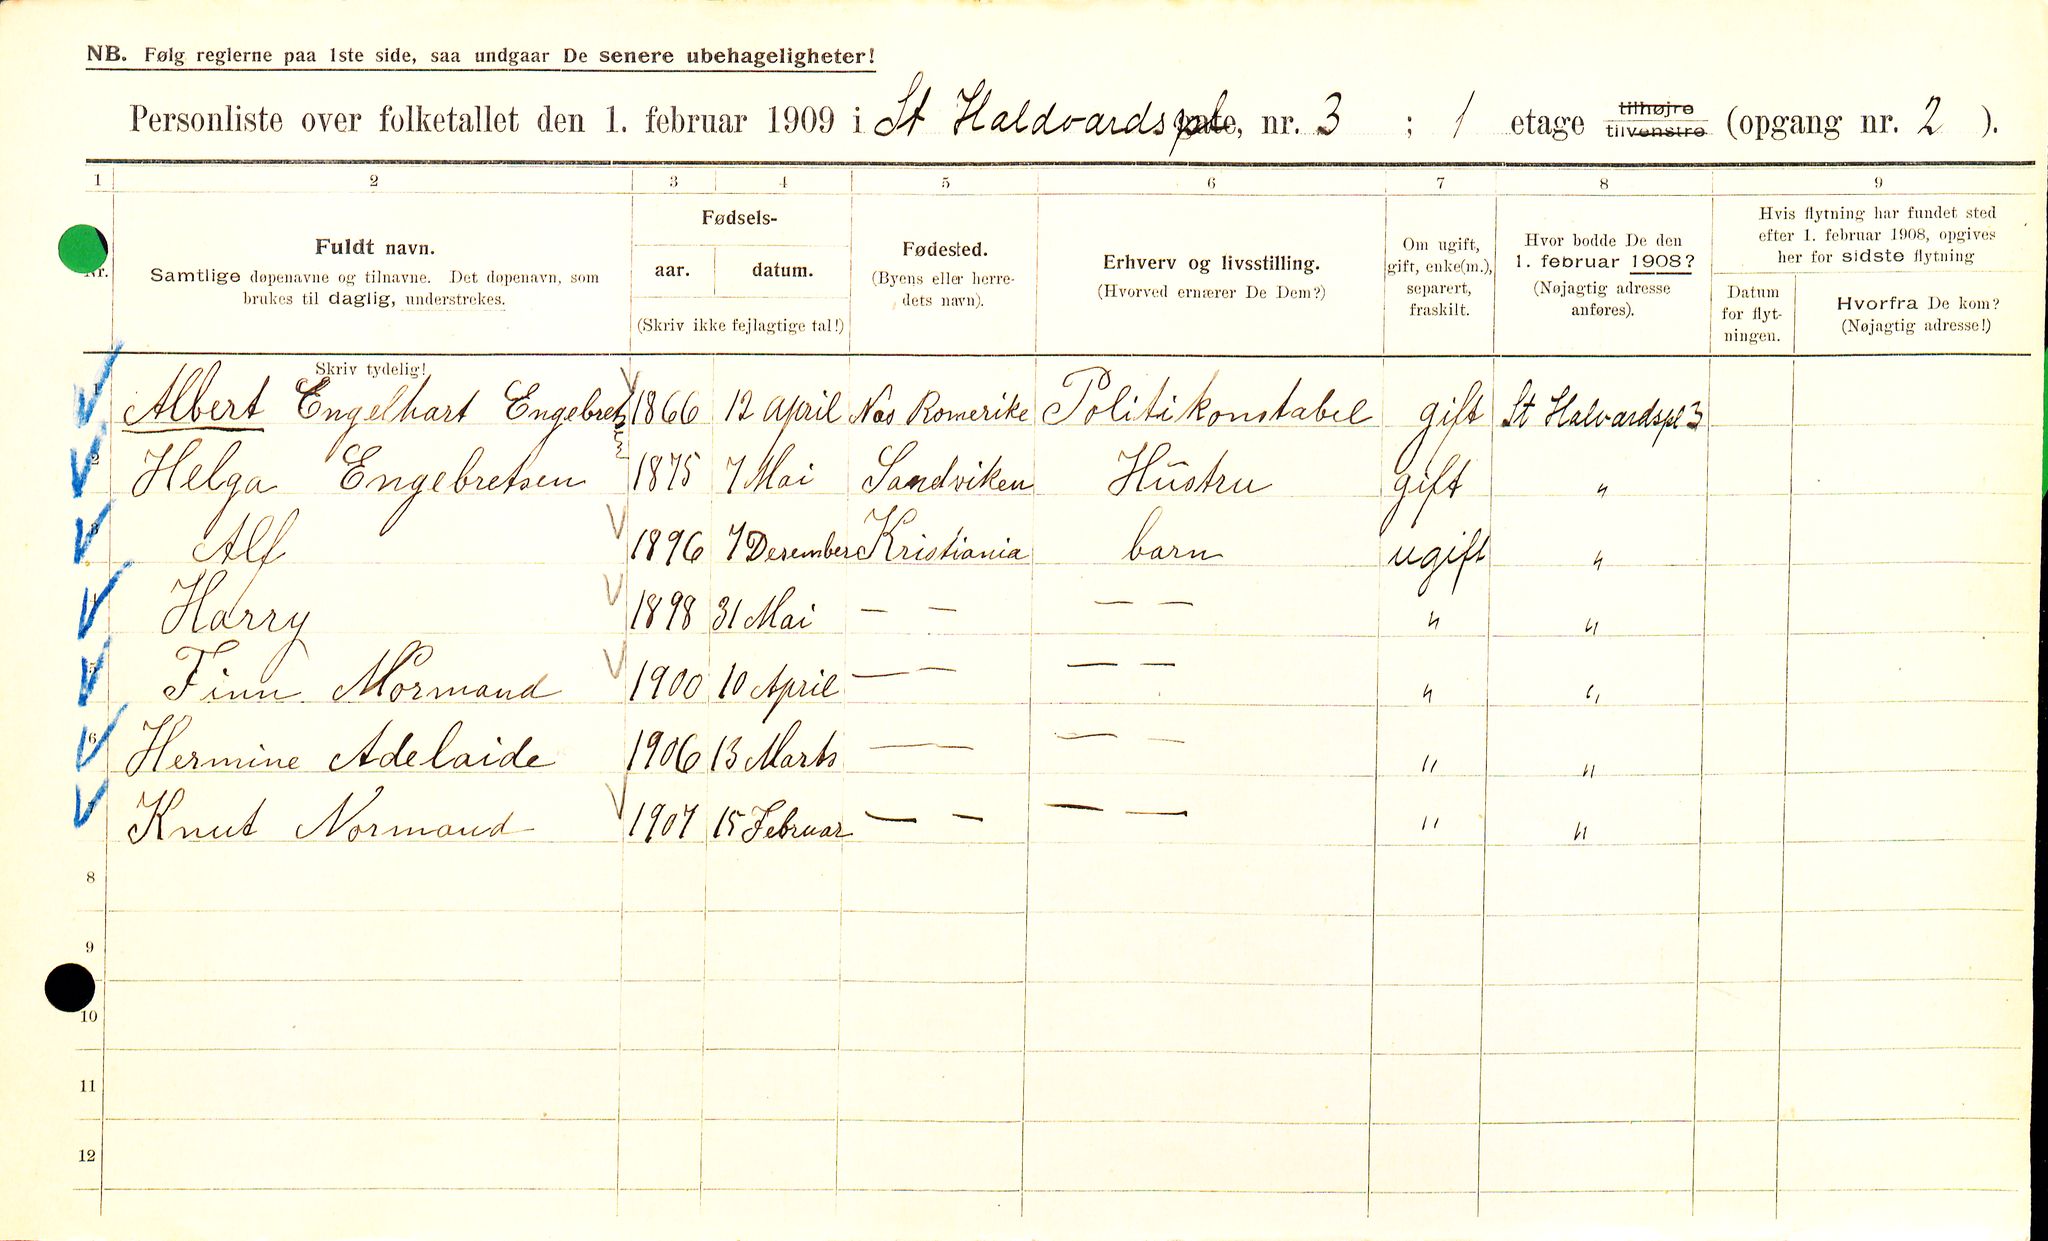 NB. Følg reglerne paa 1ste side, saa undgaar De senere ubehageligheter!
Personliste over folketallet den 1. februar 1909 i St Haldvardspl, nr. 3 ; 1 etage tilhøjre tilvenstre (opgang nr. 2 ).
1 2 3 4 5 6 7 8 9
Nr.
Fuldt navn.
Samtlige døpenavne og tilnavne. Det døpenavn, som
brukes til daglig, understrekes.
Skriv tydelig!
Fødsels-
aar. datum.
(Skriv ikke fejlagtige tal!)
Fødested.
(Byens eller herre-
dets navn).
Erhverv og livsstilling.
(Hvorved ernærer De Dem?)
Om ugift,
gift, enke(m.),
separert,
fraskilt.
Hvor bodde De den
1. februar 1908?
(Nøjagtig adresse
anføres).
Hvis flytning har fundet sted
efter 1. februar 1908, opgives
her for sidste flytning
Datum
for flyt-
ningen.
Hvorfra De kom?
(Nøjagtig adresse!)
1 Albert Engelhart Engebretsen 1866 12 april Nes Romerike Politikonstabel gift St Halvardspl 3
2 Helga Engebretsen 1875 7 Mai Sandviken Hustru gift "
3 Alf 1896 7 Desember Kristiania barn ugift "
4 Harry 1898 31 Mai — — — — " "
5 Finn Normand 1900 10 April — — — — " "
6 Hermine Adelaide 1906 13 Marts — — — — " "
7 Knut Normand 1907 15 Februar — — — — " "
8
9
10
11
12